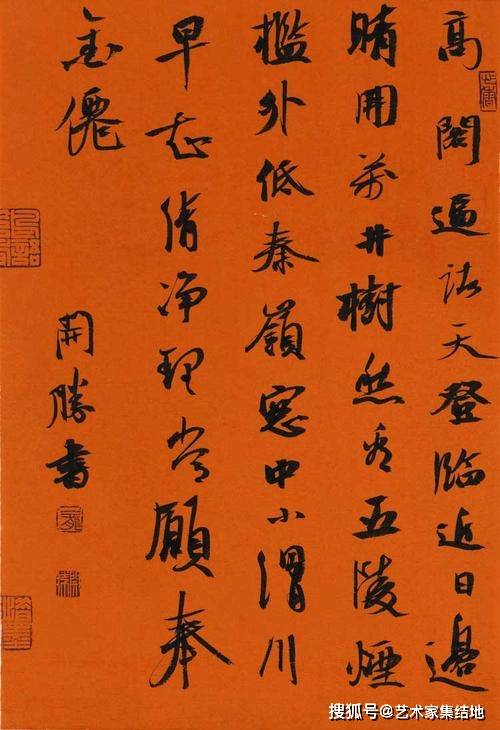 高閣逼諸天登臨近日邊
晴開萬井樹愁看五陵煙
檻外低秦嶺窓中小渭川
早知清净理常願奉
金僊
開勝書
搜狐号@艺术家集结地